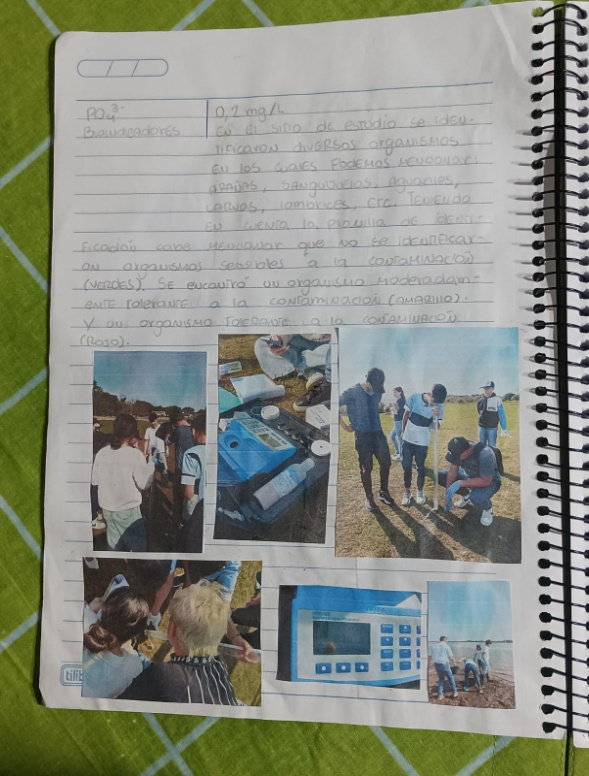 PO₄³⁻ 0,2 mg/L
Bioindicadores En el sitio de estudio se iden-
tificaron diversos organismos
en los cuales podemos mencionar:
arañas, sanguijuelas, aguaciles,
larvas, lombrices, etc. Teniendo
en cuenta la planilla de identi-
ficación cabe mencionar que no se identificar-
on organismos sensibles a la contaminación
(verdes). Se encontró un organismo moderadam-
ente tolerante a la contaminación (amarillo).
Y un organismo tolerante a la contaminación
(rojo).